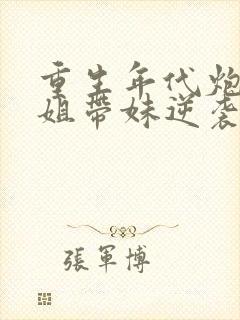 重生年代炮
姐帶妹逆袭
張軍博